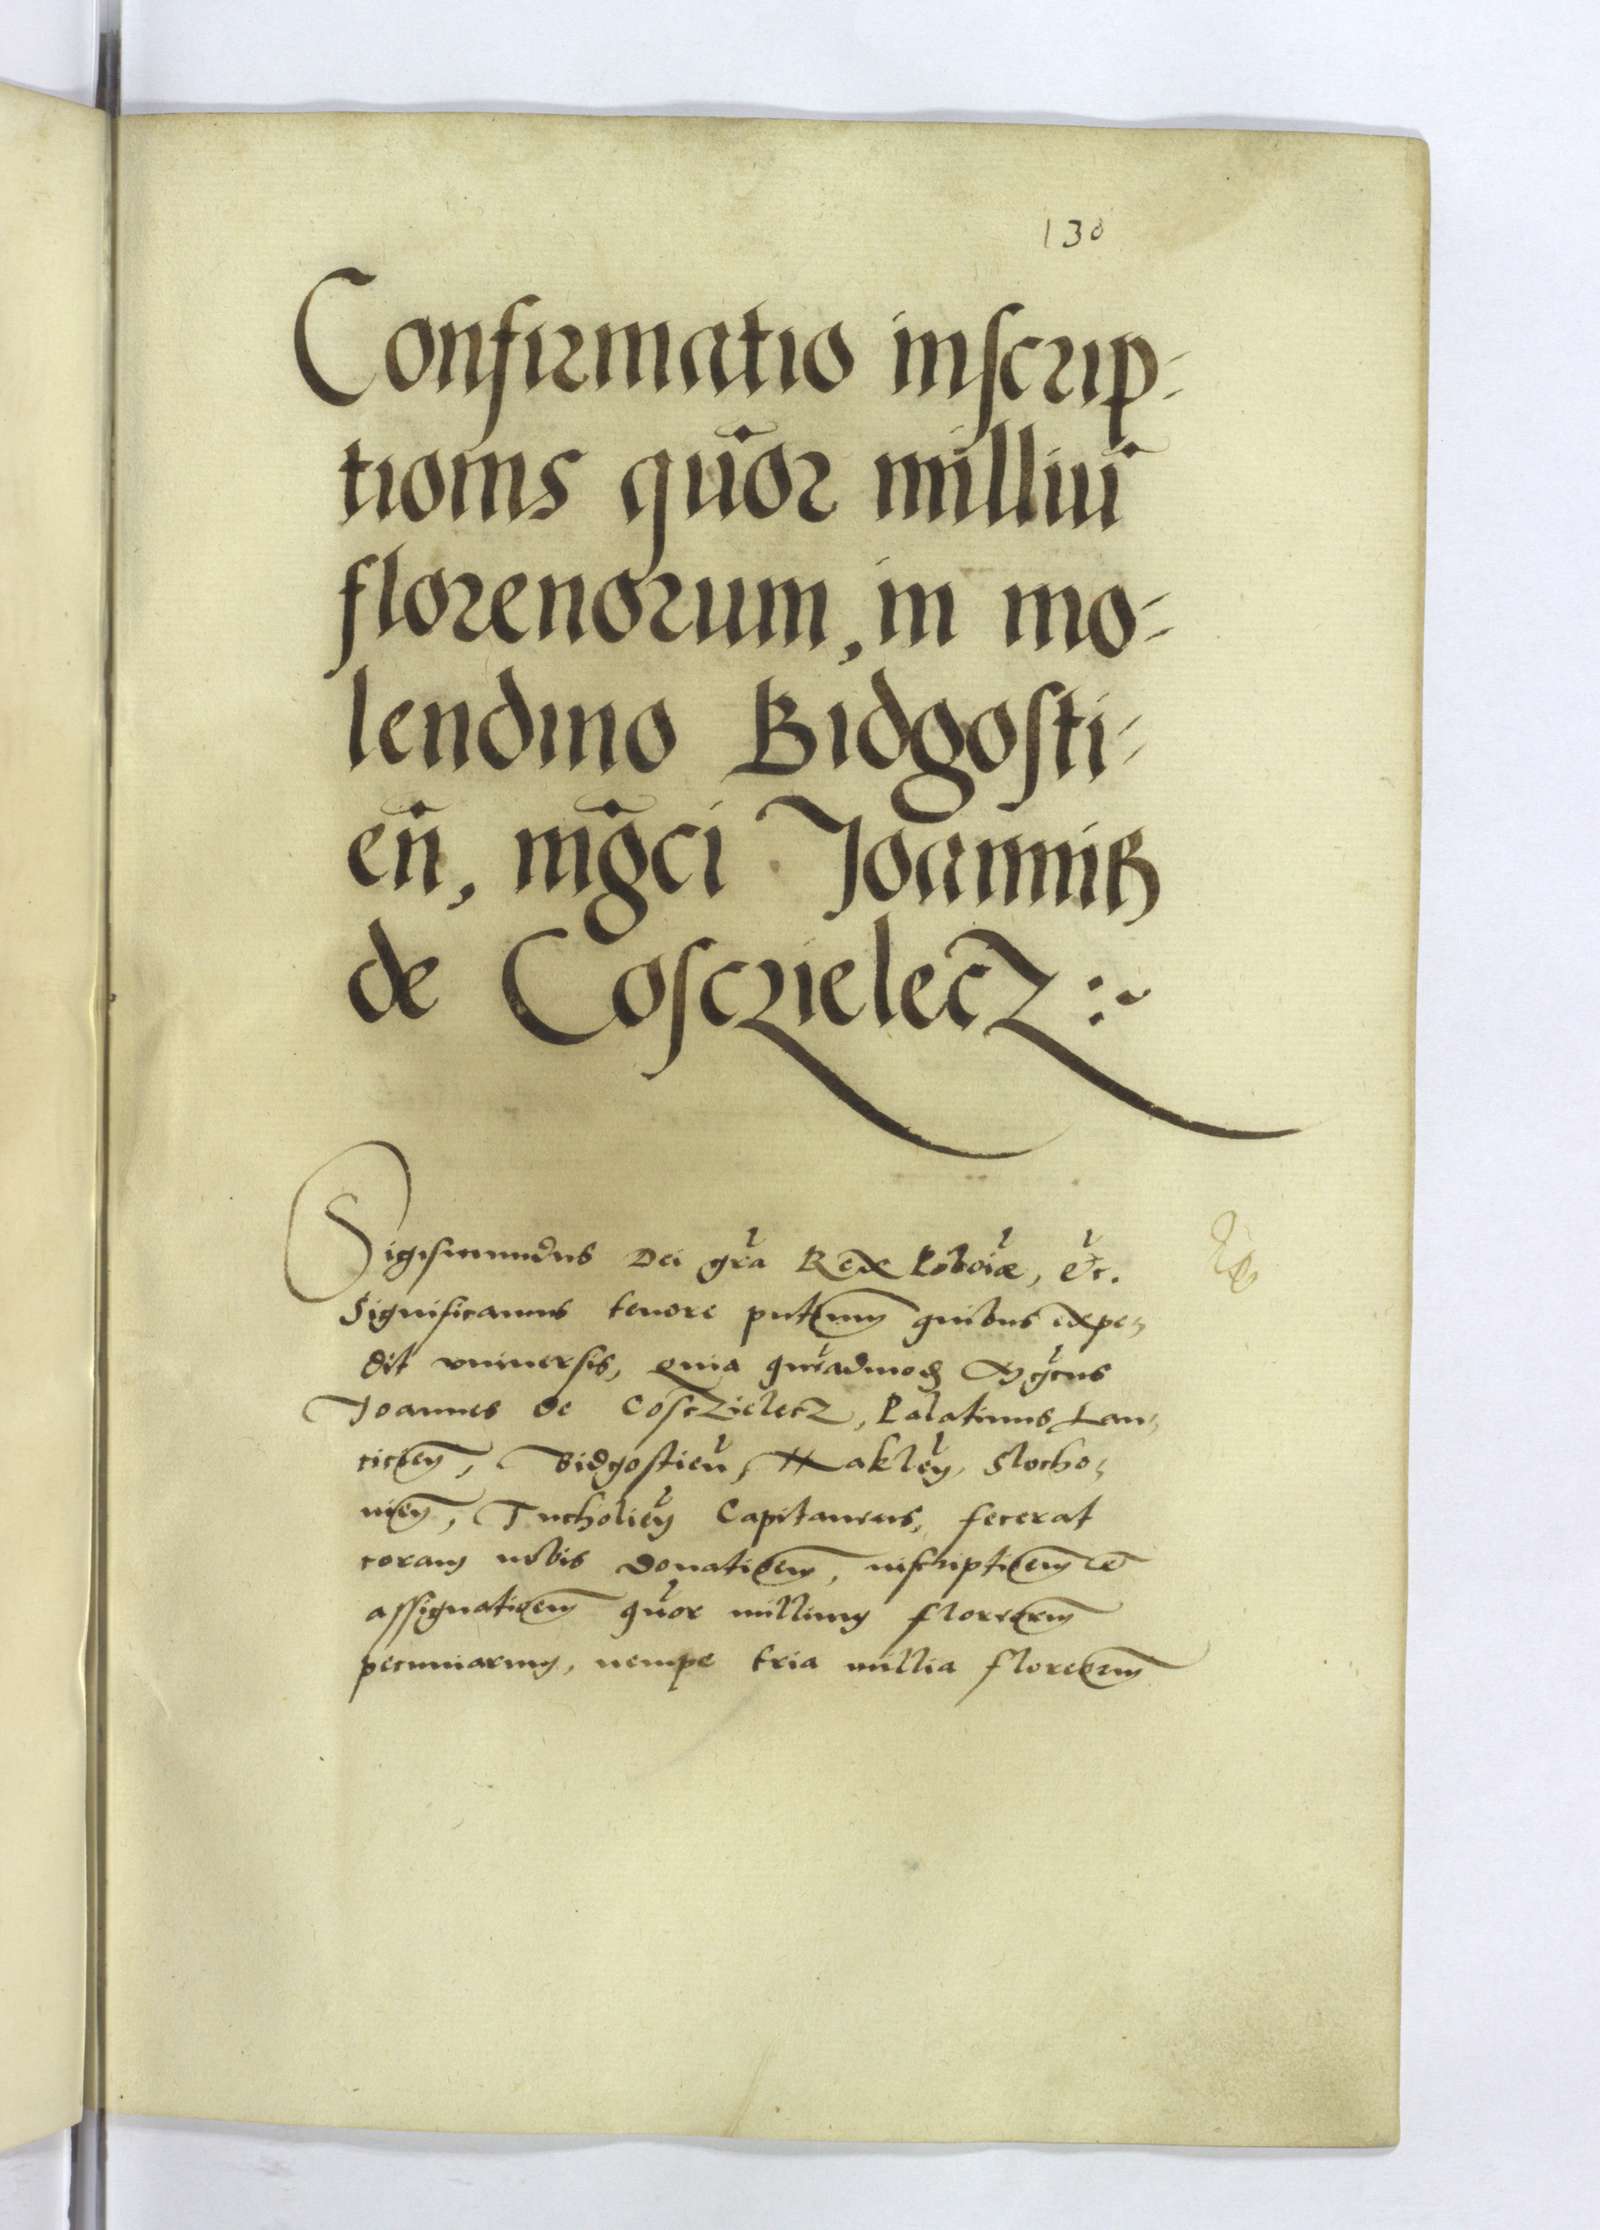 130
Confirmatio inscrip-
tionis quor̄ milliū
florenorum, in mo-
lendino Bidgosti-
eñ, mgc̄i Joannis
de Cosczielecz :~
Sigismundus Dei gr̄a Rex Poloīae, etc̄.
Significamus tenore pn̄tium quibus expe-
dit vniversis, Quia quēadmodū Mgc̄us
Joannes de Cosczielecz, Palatinus Lan-
cicieñ, Bidgostieñ, Nakleñ, Slocho-
vieñ, Tucholieñ Capitaneus, fecerat
coram nobis donationem, inscriptionem et
assignationem quor̄ millium florenorum
pecuniarum, nempe tria millia florenorum